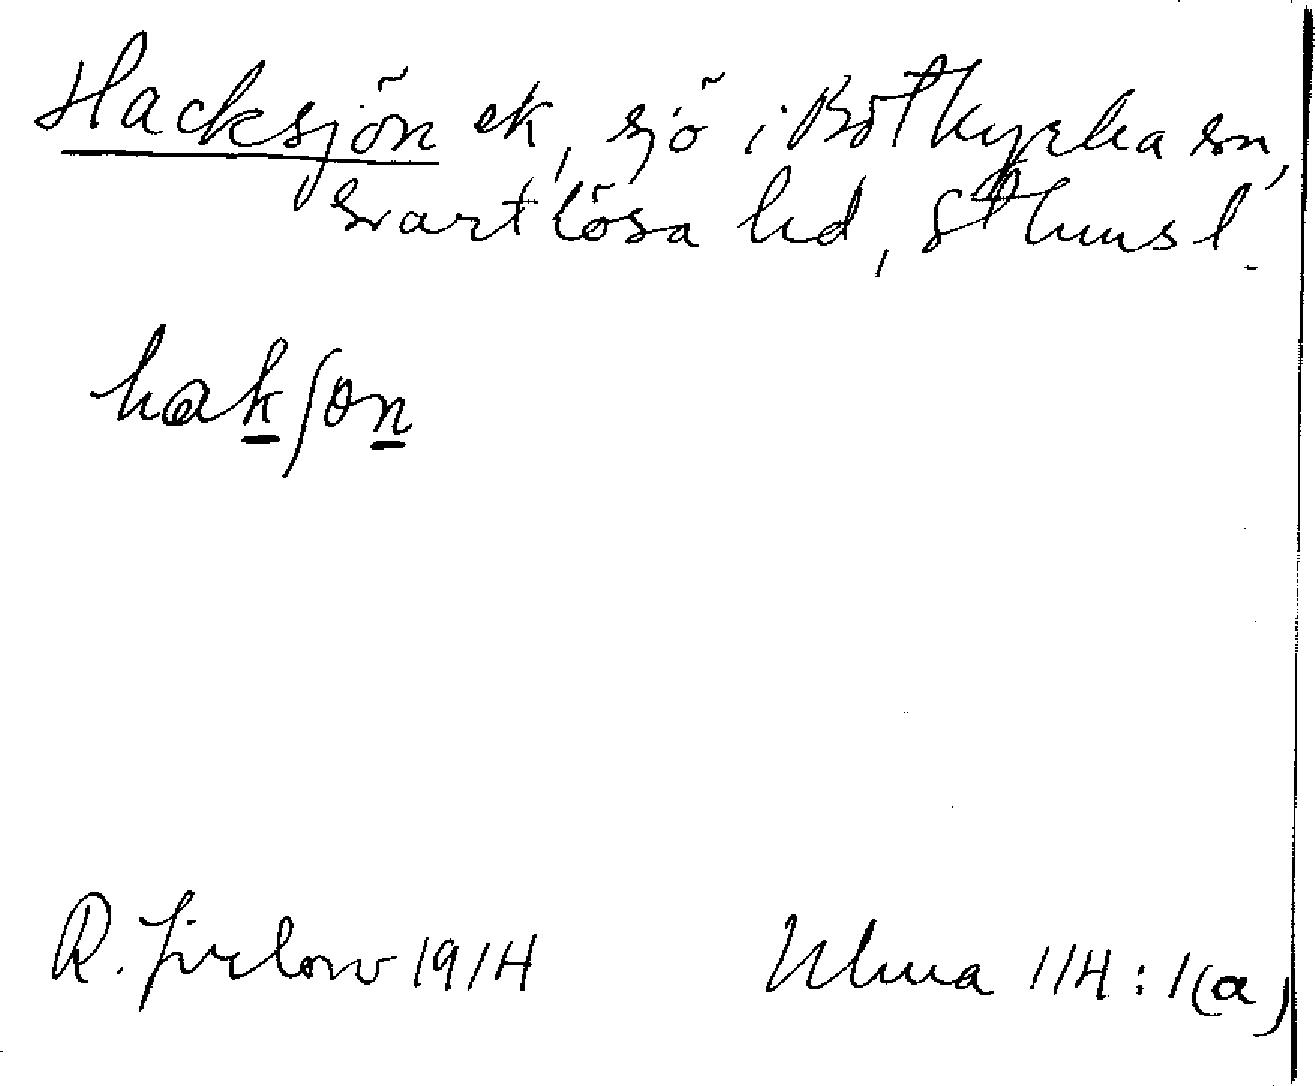 Hacksjön ek, sjö i Botkyrka sn,
Svartlösa hd, Sthms l.
hakʃön
R. Jirlow 1914
Ulma 114:1(a)